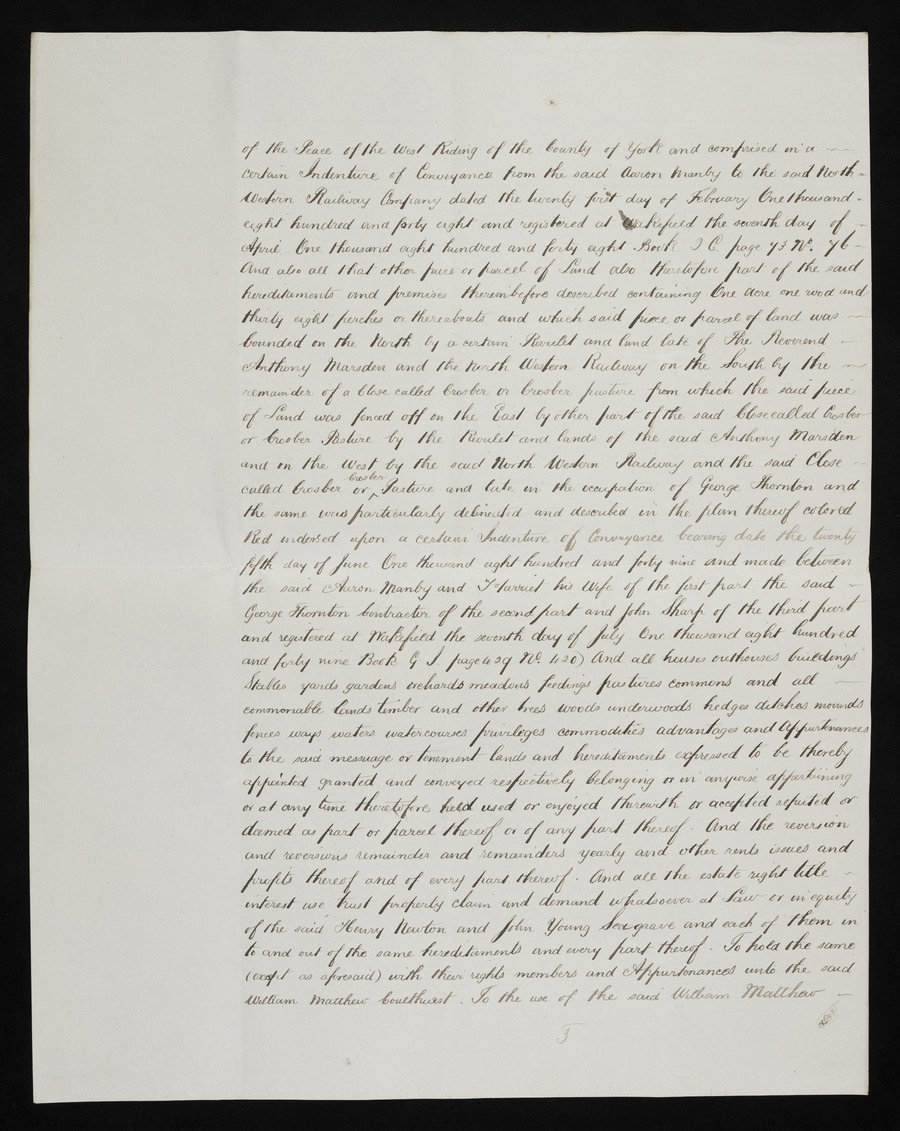 of the Peace of the West Riding of the County of York and comprised in a
certain Indenture of Conveyance from the said Aaron Manby to the said North
Western Railway Company dated the twenty first day of February One thousand
eight hundred and forty eight and registered at Wakefield the seventh day of
April One thousand eight hundred and forty eight Book I C. page 73 No. 76
And also all that other piece or parcel of Land also theretofore part of the said
hereditaments and premises thereinbefore described containing One acre one rood and
thirty eight perches or thereabouts and which said piece or parcel of land was
bounded on the North by a certain Rivulet and land late of The Reverend
Anthony Marsden and the North Western Railway on the South by the
remainder of a Close called Crosber or Croober pasture from which the said piece
of Land was fenced off on the East by other part of the said Close called Crosber
or Croober Pasture by the Rivulet and lands of the said Anthony Marsden
and on the West by the said North Western Railway and the said Close
called Crosber or Croober Pasture and late in the occupation of George Thornton and
the same were particularly delineated and described in the plan thereof colored
Red indorsed upon a certain Indenture of Conveyance bearing date the twenty
fifth day of June One thousand eight hundred and forty nine and made between
the said Aaron Manby and Harriet his Wife of the first part the said
George Thornton Contractor of the second part and John Sharp of the third part
and registered at Wakefield the seventh day of July One thousand eight hundred
and forty nine Book G I. page 429 No. 420) And all houses outhouses buildings
Stables yards gardens orchards meadows feedings pastures commons and all
commonable lands timber and other trees woods underwoods hedges ditches mounds
fences ways waters watercourses privileges commodities advantages and Appurtenances
to the said messuage or tenement lands and hereditaments expressed to be thereby
appointed granted and conveyed respectively belonging or in anywise appertaining
or at any time theretofore held used or enjoyed therewith or accepted reputed or
deemed as part or parcel thereof or of any part thereof. And the reversion
and reversions remainder and remainders yearly and other rents issues and
profits thereof and of every part thereof. And all the estate right title
interest use trust property claim and demand whatsoever at Law or in equity
of the said Henry Newton and John Young Seagrave and each of them in
to and out of the same hereditaments and every part thereof. To hold the same
(except as aforesaid) with their rights members and Appurtenances unto the said
William Matthew Coulthurst. To the use of the said William Matthew